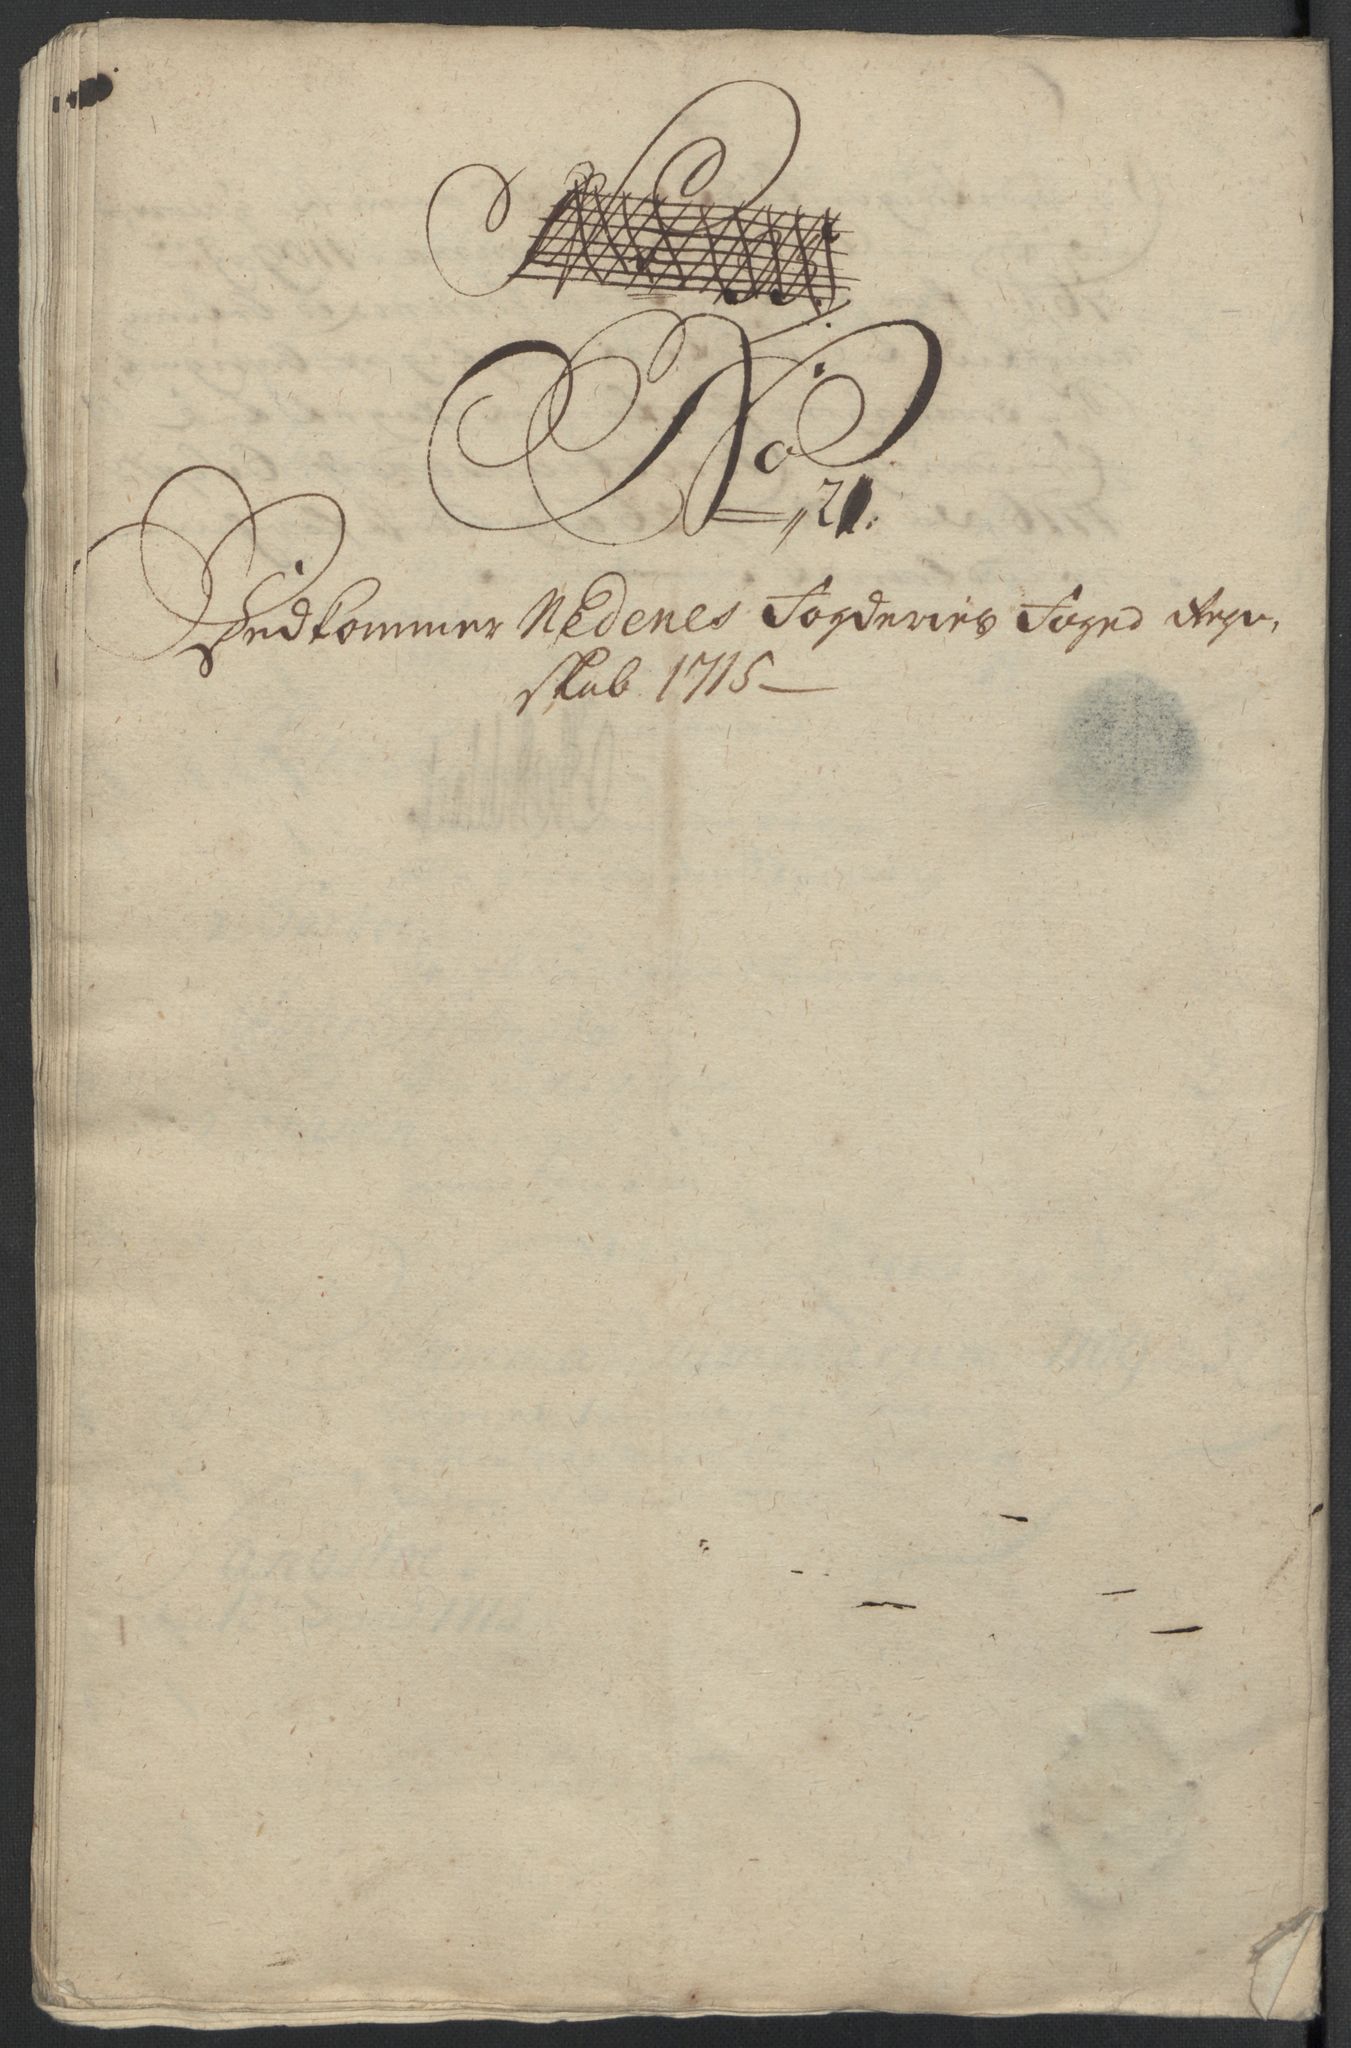 No
21.
Vedkommer Nedenes Fogderies Foged Regn,
skab 1715